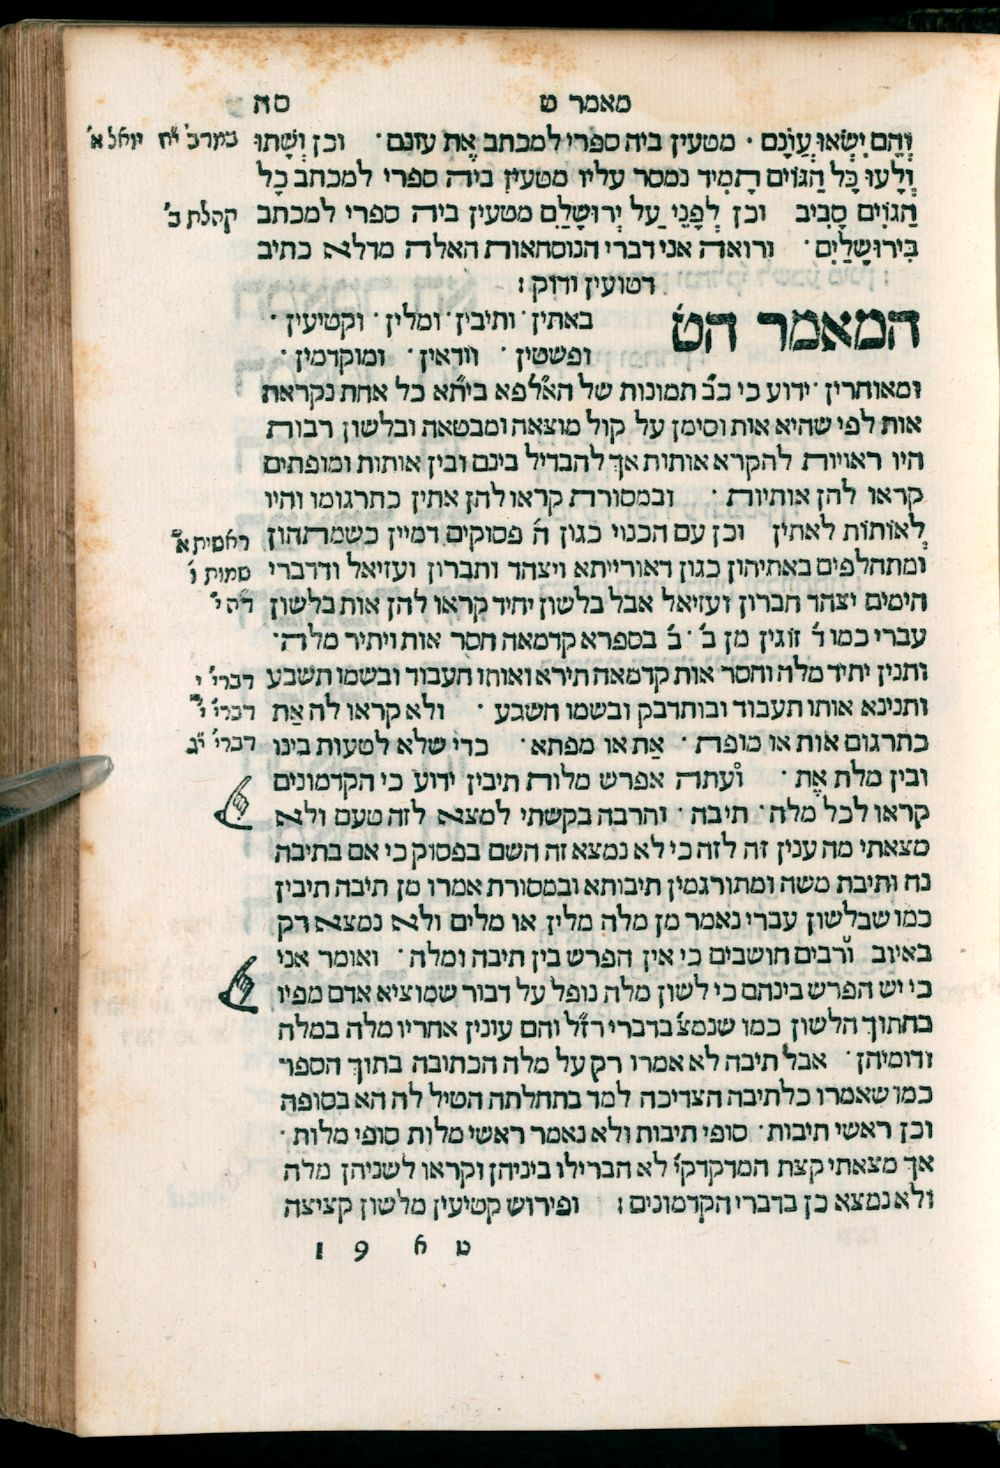 מאמר ט סה
וְהֵם יִשְׂאוּ עֲוֹנָם · מטעין ביה ספרי למכתב אֶת עונם · וכן וְשָׁתוּ במדב׳ י״ח יואל א׳
וְלָעוּ כָּל הַגּוֹיִם תָּמִיד נמסר עליו מטעין ביה ספרי למכתב כָל
הַגּוֹיִם סָבִיב וכן לְפָנַי עַל יְרוּשָׁלַםִ מטעין ביה ספרי למכתב קהלת ב׳
בִּירוּשָׁלַיִם · ורואה אני דברי הנוסחאות האלה מדלא כתיב
דטועין ודוק :
המאמר הט׳ באתין · ותיבין · ומלין · וקטיעין ·
ופשטין · וודאין · ומוקדמין ·
ומאוחרין · ידוע כי כ״ב תמונות של הא״לפא בי״תא כל אחת נקראת
אות לפי שהיא אות וסימן על קול מוצאה ומבטאה ובלשון רבות
היו ראויות להקרא אותות אך להבדיל בינם ובין אותות ומופתים
קראו להן אותיות · ובמסורת קראו להן אתין כתרגומו והיו
לְאוֹתוֹת לאתין וכן עם הכנוי כגון ה׳ פסוקים דמיין בשמהתהון ראשית א׳
ומתחלפים באתיהון כגון דאורייתא ויצהר וחברון ועזיאל ודדברי שמות ו׳
הימים יצהר חברון ועזיאל אבל בלשון יחיד קראו להן אות בלשון דה׳ י׳
עברי כמו ד׳ זוגין מן ב׳ · ב׳ בספרא קדמאה חסר אות ויתיר מלה ·
ותנין יתיר מלה וחסר אות קדמאה תירא ואותו תעבוד ובשמו תשבע דברי׳ י׳
ותנינא אותו תעבוד ובותדבק ובשמו תשבע · ולא קראו לה אַת דברי׳ י׳
כתרגום אות או מופת · אַת או מפתא · כדי שלא לטעות בינו דברי׳ י״ג
ובין מלת אֶת · ועתה אפרש מלות תיבין ידוע כי הקדמונים
קראו לכל מלה · תיבה · והרבה בקשתי למצא לזה טעם ולא
מצאתי מה ענין זה לזה כי לא נמצא זה השם בפסוק כי אם בתיבה
נח ותיבת משה ומתורגמין תיבותא ובמסורת אמרו מן תיבה תיבין
כמו שבלשון עברי נאמר מן מלה מלין או מלים ולא נמצא רק
באיוב ורבים חושבים כי אין הפרש בין תיבה ומלה · ואומר אני
כי יש הפרש ביניהם כי לשון מלה נופל על דבור שמוציא אדם מפיו
בחתוך הלשון כמו שנמצ׳ בדברי רז״ל והם עונין אחריו מלה במלה
ודומיהן · אבל תיבה לא אמרו רק על מלה הכתובה בתוך הספר
כמו שאמרו כלתיבה הצריכה למד בתחלתה הטיל לה הא בסופה
וכן ראשי תיבות · סופי תיבות ולא נאמר ראשי מלות סופי מלות ·
אך מצאתי קצת המדקדקי׳ לא הבדילו ביניהן וקראו לשניהן מלה
ולא נמצא כן בדברי הקדמונים : ופירוש קטיעין מלשון קציצה
ט א 9 1